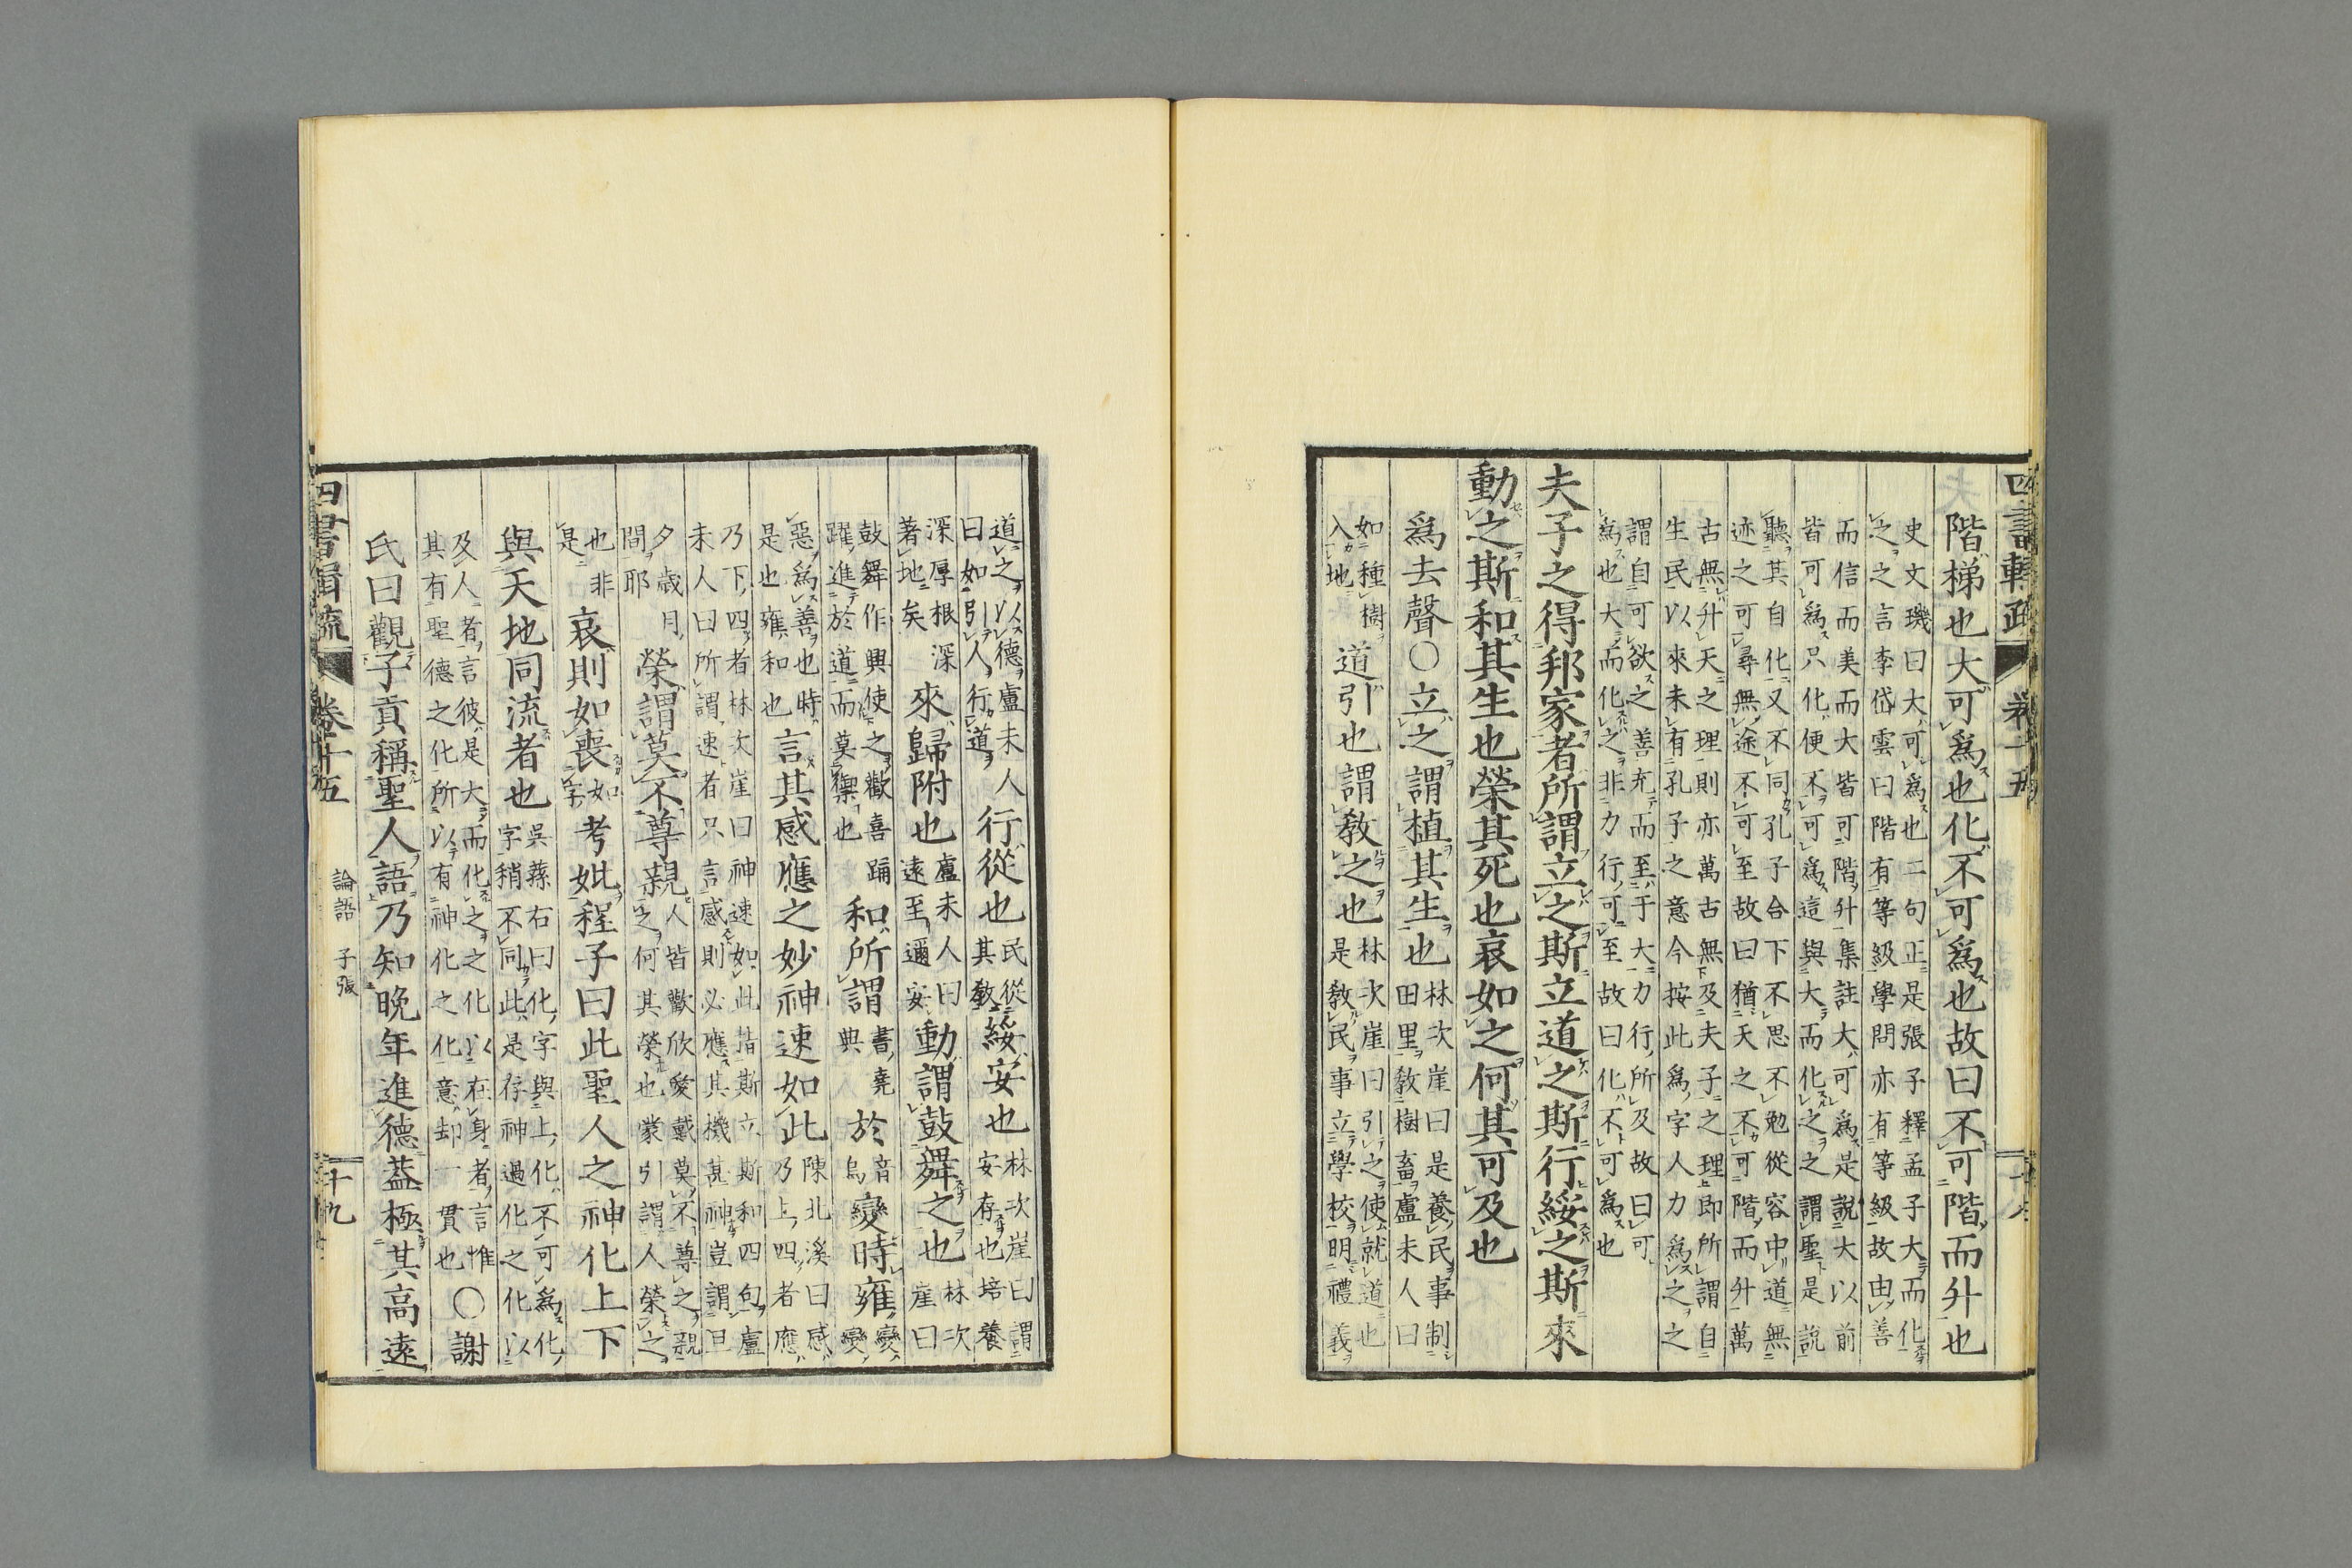 階梯也大可爲也化不可爲也故曰不可階而升也
史文璣曰大可爲也二句正是張子釋孟子大而化
之之言李岱雲曰階有等級學問亦有等級故由善
而信而美而大皆可階升集註大可爲是說大以前
皆可爲只化便不可爲這與大而化之之謂聖是說
聽其自化又不同孔子合下不思不勉從容中道無
迹之可尋無途不可至故曰猶天之不可階而升萬
古無升天之理則亦萬古無及夫子之理即所謂自
生民以來未有孔子之意今按此爲字人力爲之之
謂自可欲之善充而至于大力行所及故曰可
爲也大而化之非力行可至故曰化不可爲也
夫子之得邦家者所謂立之斯立道之斯行綏之斯來
動之斯和其生也榮其死也哀如之何其可及也
爲去聲○立之謂植其生也
林次崖曰是養民事制
田里敎樹畜盧未人曰
如種樹
入地
道引也謂敎之也
林次崖曰引之使就道也
是敎民事立學校明禮義
道之以德盧未人
曰如引人行道
行從也
民從
其敎
綏安也
林次崖曰謂
安存也培養
深厚根深
著地矣
來歸附也
盧未人曰
遠至邇安
動謂鼓舞之也
林次
崖曰
鼓舞作興使之歡喜踊
躍進於道而莫禦也
和所謂
書堯
典
於
音
烏
變時雍
變
變
惡爲善也時
是也雍和也
言其感應之妙神速如此
陳北溪曰感
乃上四者應
乃下四者林次崖曰神速如此指斯立斯和四句盧
未人曰所謂速者只言感則必應其機甚神豈謂旦
夕歲月
間耶
榮謂莫不尊親
人皆歡欣愛戴莫不尊之親
之何其榮也蒙引謂人榮之
也非
是
哀則如喪
如
字
考妣程子曰此聖人之神化上下
與天地同流者也
吳蓀右曰化字與上化不可爲化
字稍不同此是存神過化之化以
及人者言彼是大而化之之化以在身者言惟
其有聖德之化所以有神化之化意却一貫也
○謝
氏曰觀子貢稱聖人語乃知晩年進德葢極其高遠
卷十五
論語 子張
十九